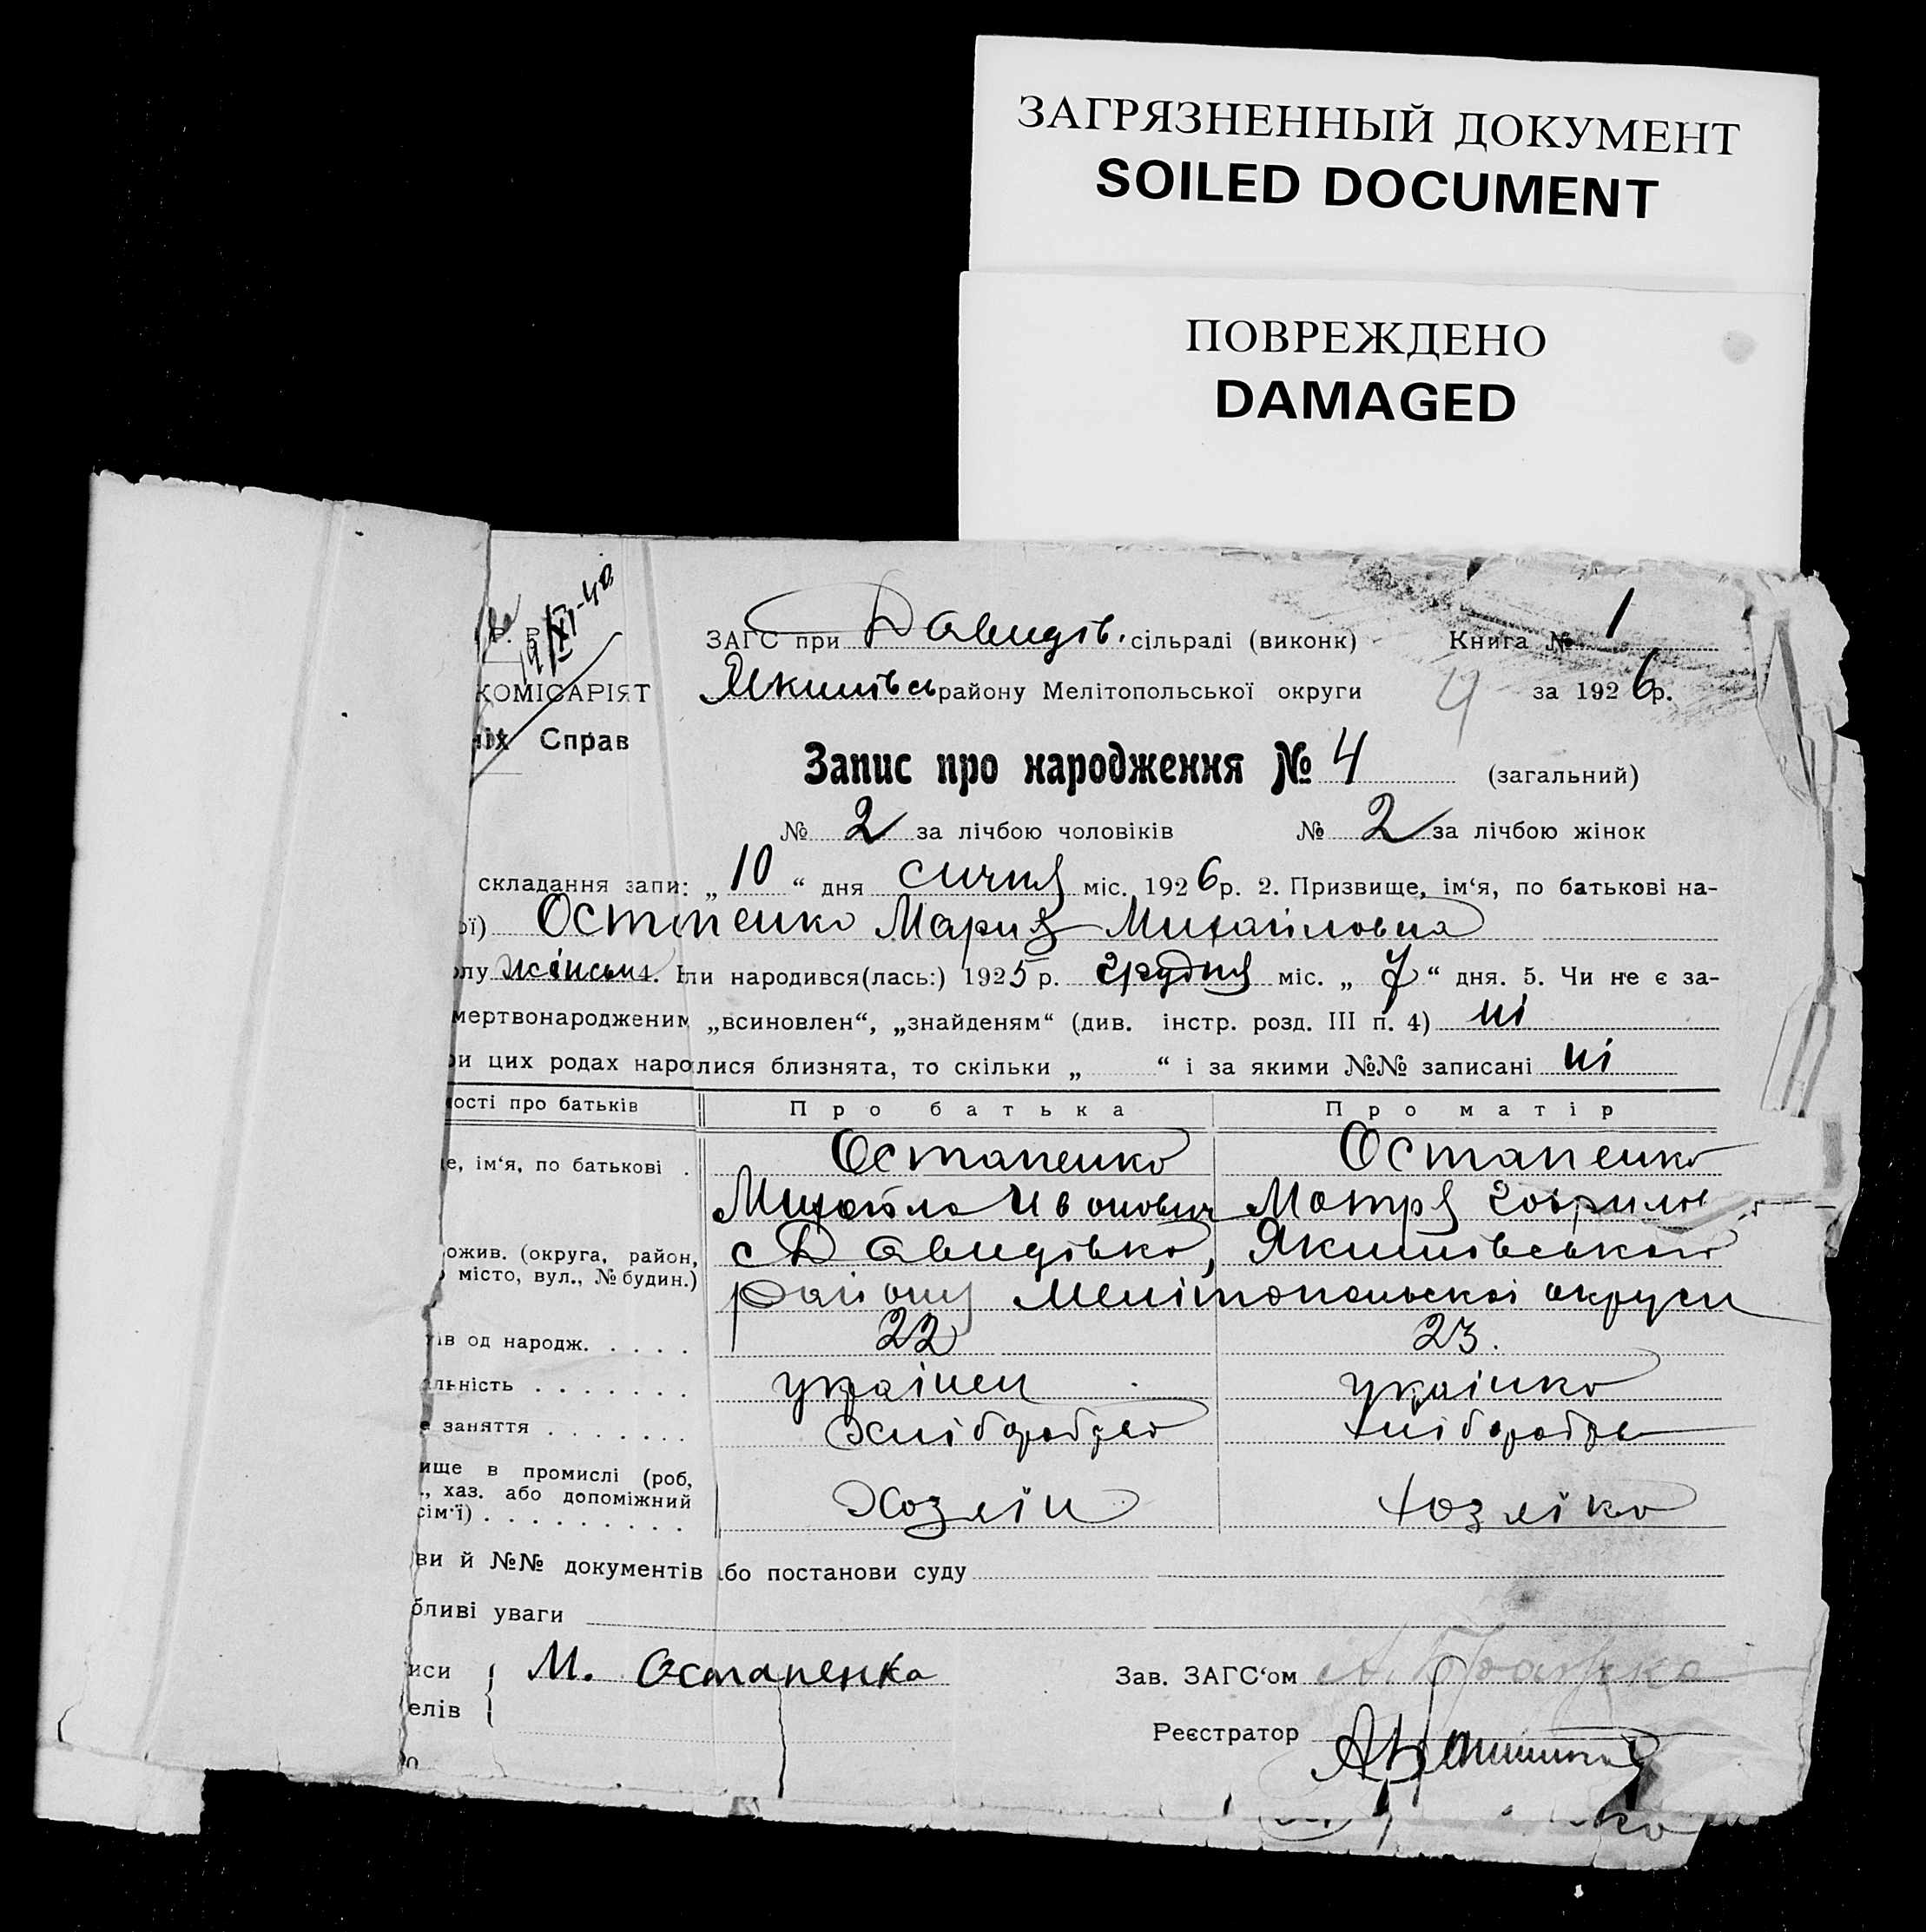 ЗАГРЯЗНЕННЫЙ ДОКУМЕНТ
SOILED DOCUMENT
ПОВРЕЖДЕНО
DAMAGED
ЗАГС при Давидів. сільраді (виконк) Книга № 1
КОМІСАРІЯТ Якимівсь району Мелітопольської округи 4 за 1926р.
ніх Справ
Запис про народження № 4 (загальний)
№ 2 за лічбою чоловіків № 2 за лічбою жінок
складання запи: „ 10 “ дня січня міс. 1926р. 2. Призвище, ім‘я, по батькові на-
ої) Остапенко Мария Михайловна
олу жіноч 4. ли народився(лась:) 1925 р. грудня міс. „ 7 “ дня. 5. Чи не є за-
мертвонародженим „всиновлен“, „знайденям“ (див. інстр. розд. III п. 4) ні
ри цих родах наролися близнята, то скільки „ “ і за якими №№ записані ні
ості про батьків Про батька Про матір
е, ім‘я, по батькові . Остапенко Остапенко
Михайло Иванович Мотря Гаврилов
ожив. (округа, район, с Давидівка, Якимівського
місто, вул., № будин.) району Мелітопольскої округи
ів од народж. . . . . 22 23.
льність . . . . . . . українец українка
е заняття . . . . . . . Хлібороб хлібороб
ище в промислі (роб,
., хаз. або допоміжний Хозяїн хозяїка
сім‘ї) . . . . . . . . .
ви й №№ документів або постанови суду
бливі уваги
иси М. Остапенка Зав. ЗАГС‘ом
елів
Реєстратор